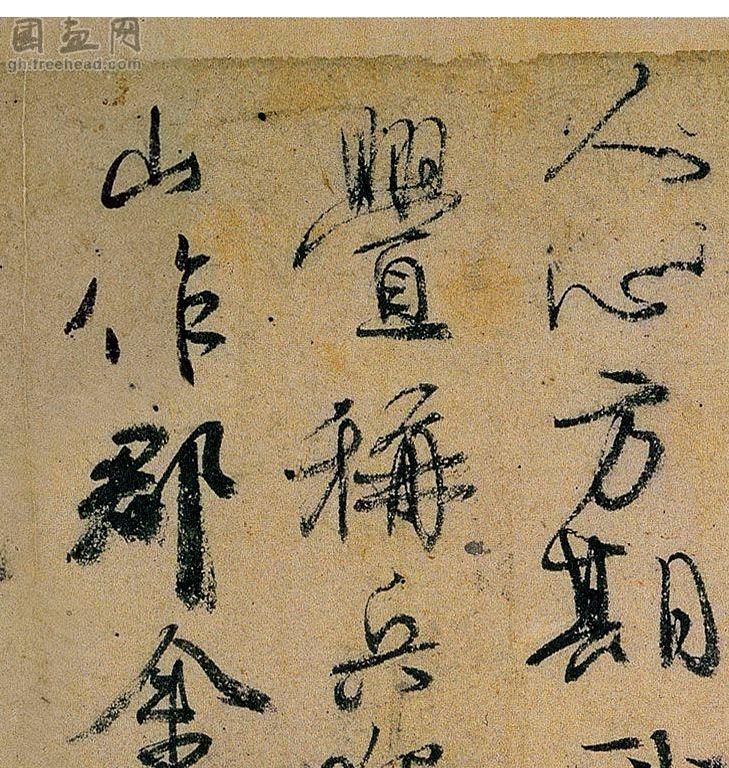 國畫网
gh.freehead.com
人心方期
舋稱兵
山作郡余